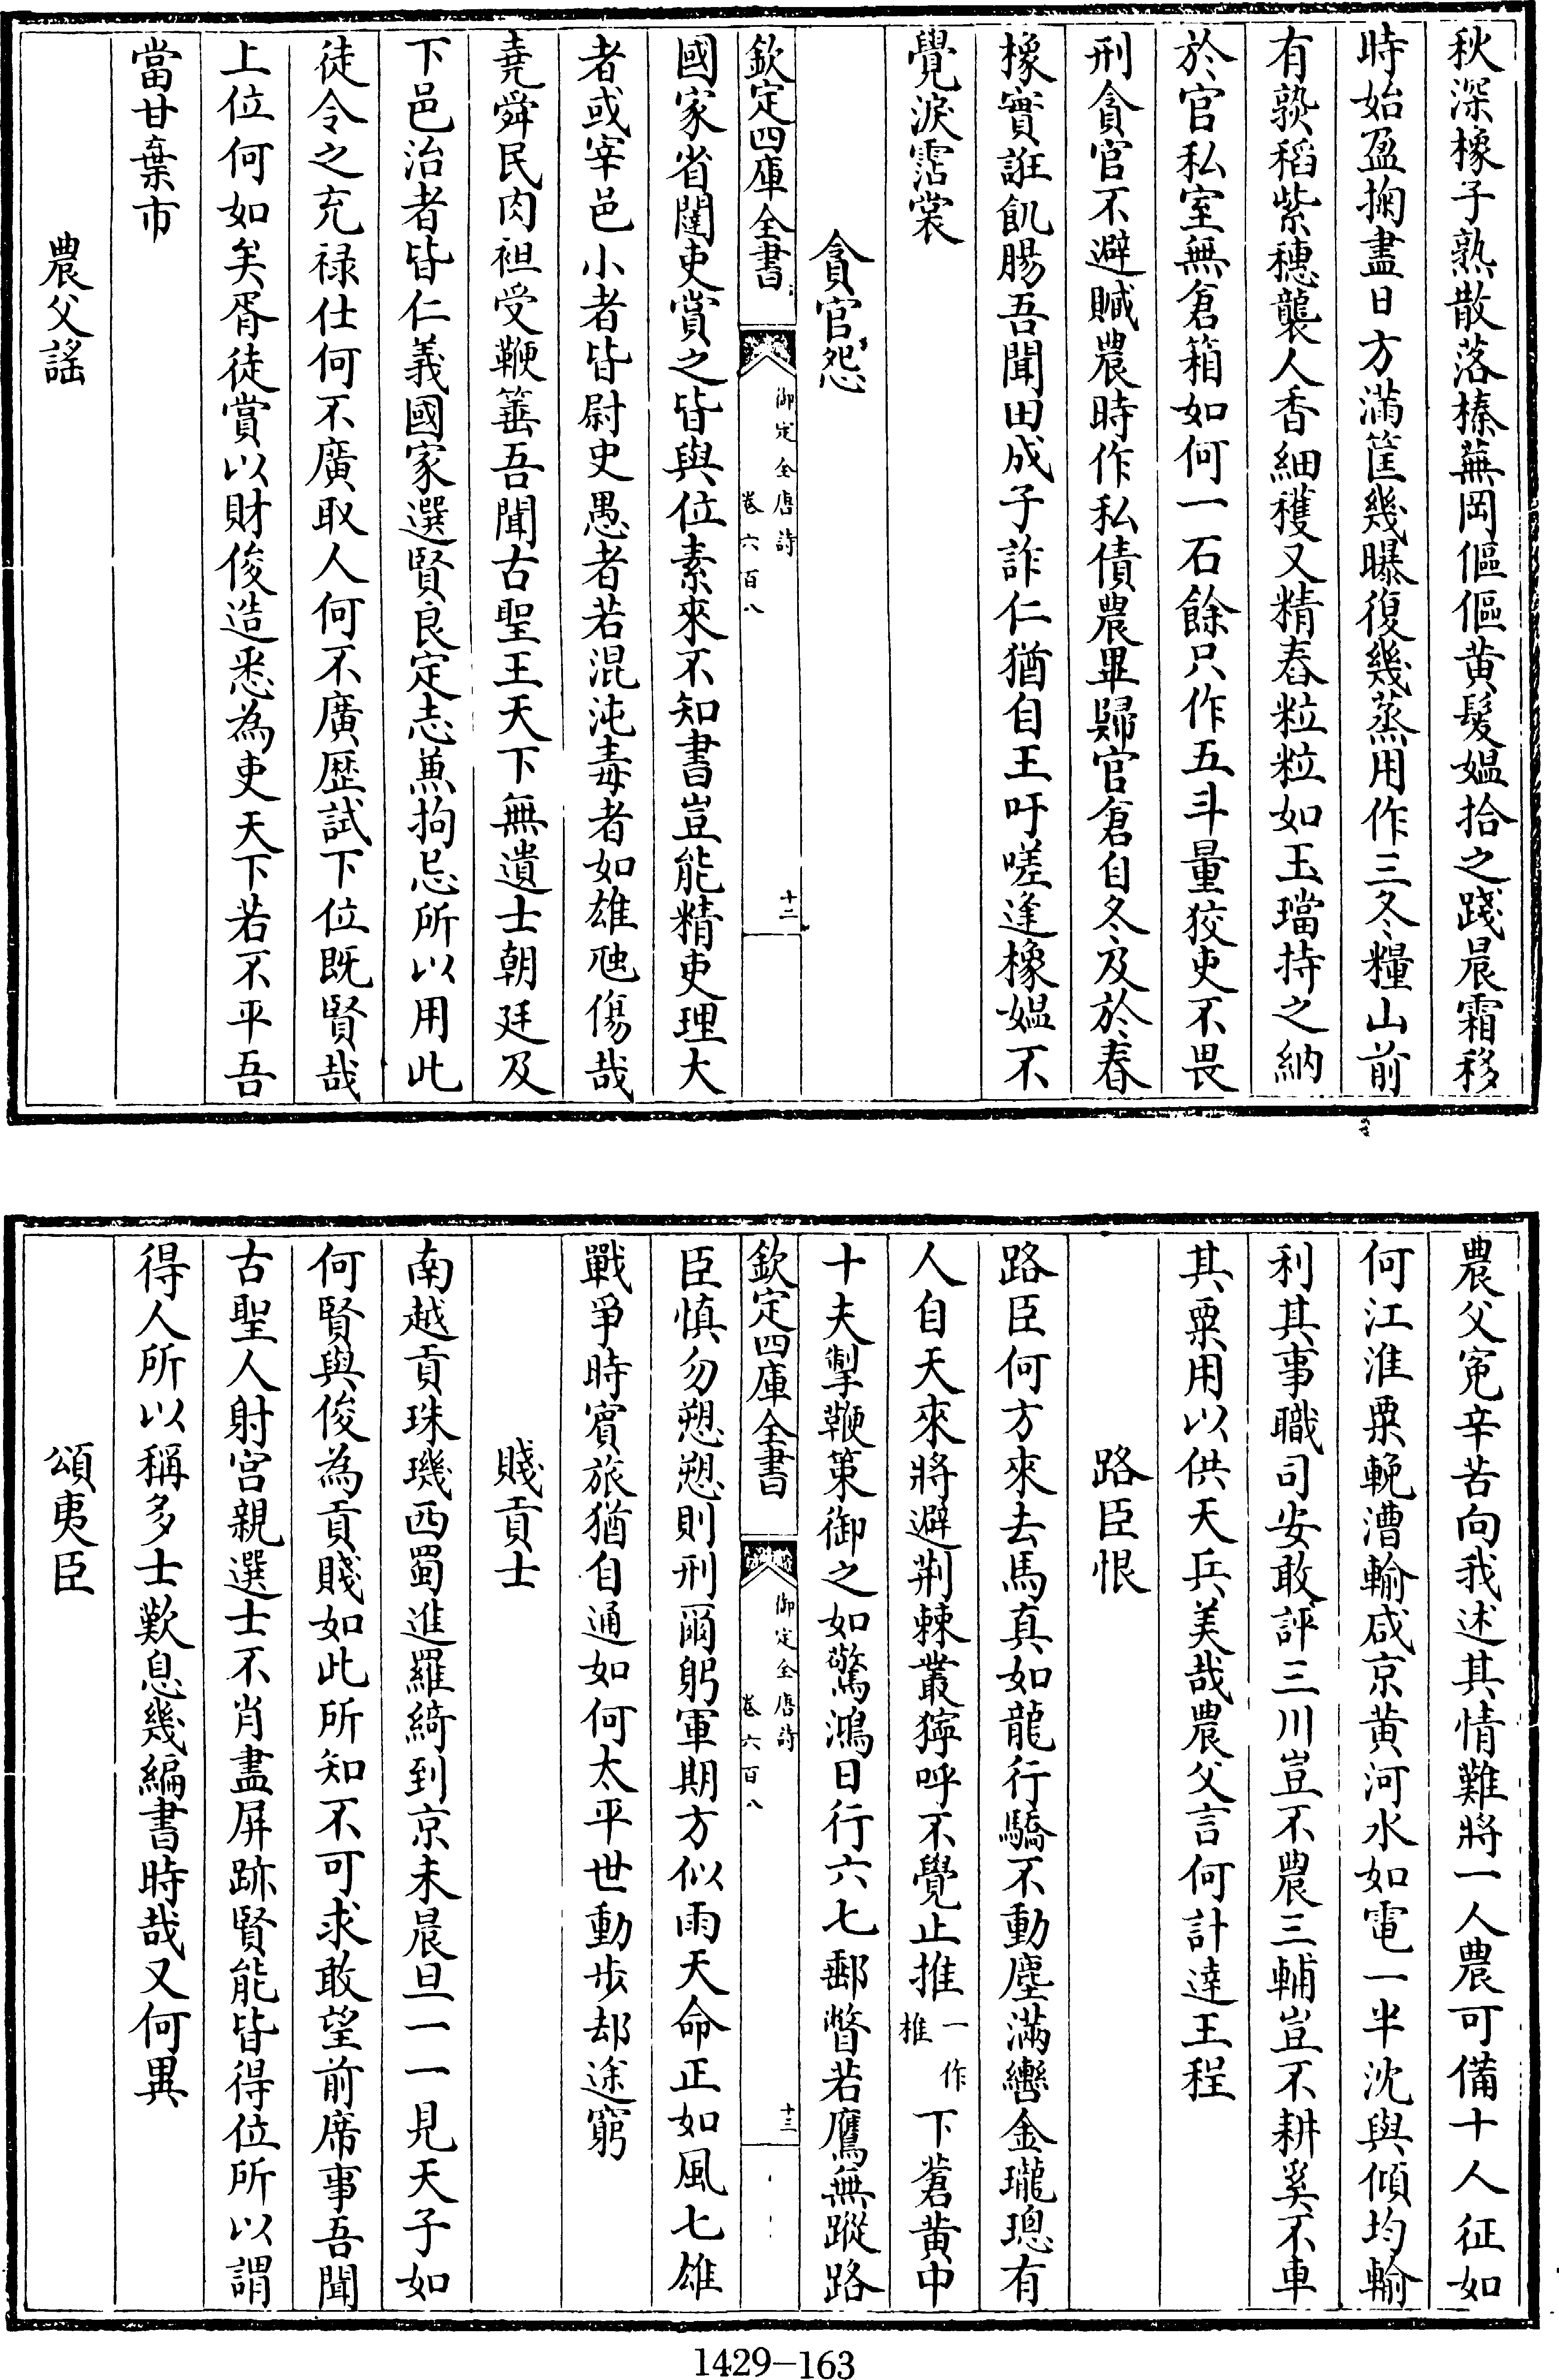 秋深橡子熟散落榛蕪岡傴傴黄髮媪拾之踐晨霜移
時始盈掬盡日方滿筐幾曝復幾蒸用作三冬糧山前
有孰稻紫穗襲人香細穫又精舂粒粒如玉璫持之納
於官私室無倉箱如何一石餘只作五斗量狡吏不畏
刑貪官不避贓農時作私債農畢歸官倉自冬及於春
橡實誑飢腸吾聞田成子詐仁猶自王吁嗟逢橡媪不
覺淚霑裳
貪官怨
欽定四庫全書
御定全唐詩
卷六百八
十二
國家省闥吏賞之皆與位素來不知書豈能精吏理大
者或宰邑小者皆尉史愚者若混沌毒者如雄虺傷哉
堯舜民肉袒受鞭箠吾聞古聖王天下無遺士朝廷及
下邑治者皆仁義國家選賢良定志兼拘忌所以用此
徒令之充禄仕何不廣取人何不廣歴試下位既賢哉
上位何如矣胥徒賞以財俊造悉為吏天下若不平吾
當甘棄市
農父謡
農父寃辛苦向我述其情難將一人農可備十人征如
何江淮粟輓漕輸咸京黄河水如電一半沈與傾均輸
利其事職司安敢評三川豈不農三輔豈不耕奚不車
其粟用以供天兵美哉農父言何計達王程
路臣恨
路臣何方來去馬真如龍行驕不動塵滿轡金瓏璁有
人自天來將避荆棘叢獰呼不覺止推一作椎下蒼黄中
十夫掣鞭策御之如驚鴻日行六七郵瞥若鷹無蹤路
欽定四庫全書
御定全唐詩
卷六百八
十三
臣慎勿愬愬則刑爾躬軍期方似雨天命正如風七雄
戰爭時賓旅猶自通如何太平世動步却途窮
賤貢士
南越貢珠璣西蜀進羅綺到京未晨旦一一見天子如
何賢與俊為貢賤如此所知不可求敢望前席事吾聞
古聖人射宫親選士不肖盡屏跡賢能皆得位所以謂
得人所以稱多士歎息幾編書時哉又何異
頌夷臣
1429-163